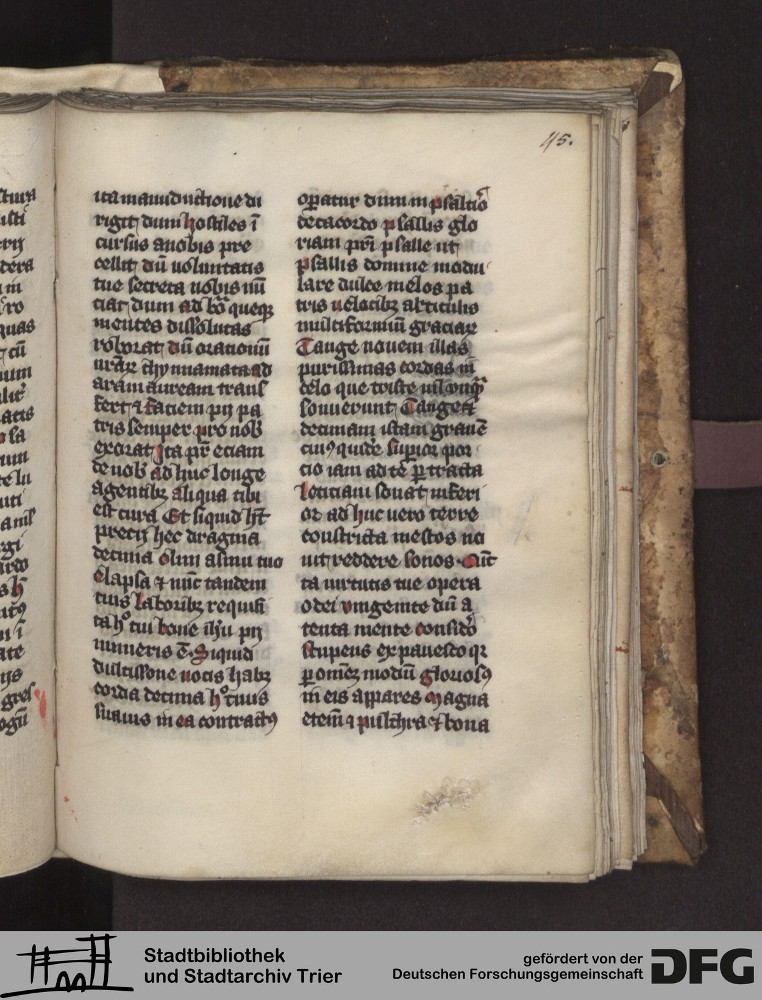 45.
ita manuductione di
rigit, dum hostiles ī
cursus a nobis pre
cellit, dū uoluntatis
tue secreta nobis nū
ciat, dum ad bō queqꝫ
mentes dissolutas
roborat, dū orationū
nr̄aꝝ thymiamata ad
aram auream trans
fert, & faciem pij pa
tris semper pro nob̄
exorat, Ita pr̄ eciam
de nob̄ adhuc longe
agentibꝫ aliqua tibi
est cura Et siquid hn̄t
precij hec dragma
decima olim a sinu tuo
elapsa & nūc tandem
tuis laboribꝫ requisi
ta, hͦ tui bone ih̄u pij
muneris ē. Siquid
dulcissone uocis habꝫ
corda decima hͦ tuus
suauis in ea contractꝰ
oꝑatur dum in psaltio
decacordo psallis glo
riam pr̄i psalle ut
psallis domine modu
lare dulce melos pa
tris uelocibꝫ articulis
multiformiū graciaꝝ
Tange nouem illas
purissimas cordas in
celo que triste nil unqͣ
sonuerunt Tange &
decimam istam grauē
cuiꝰ quidē supior por
cio iam ad te ꝑtracta
leticiam sonat inferi
or adhuc uero terre
constricta mestos no
uit reddere sonos. Cūt
ta uirtutis tue opera
o dei unigenite dū a
tenta mente considō
stupens expauesco qꝛ
ꝑ omnē modū gloriosꝰ
in eis appares Magna
etenī & pulchra & bona
Stadtbibliothek
und Stadtarchiv Trier
gefördert von der
Deutschen Forschungsgemeinschaft
DFG